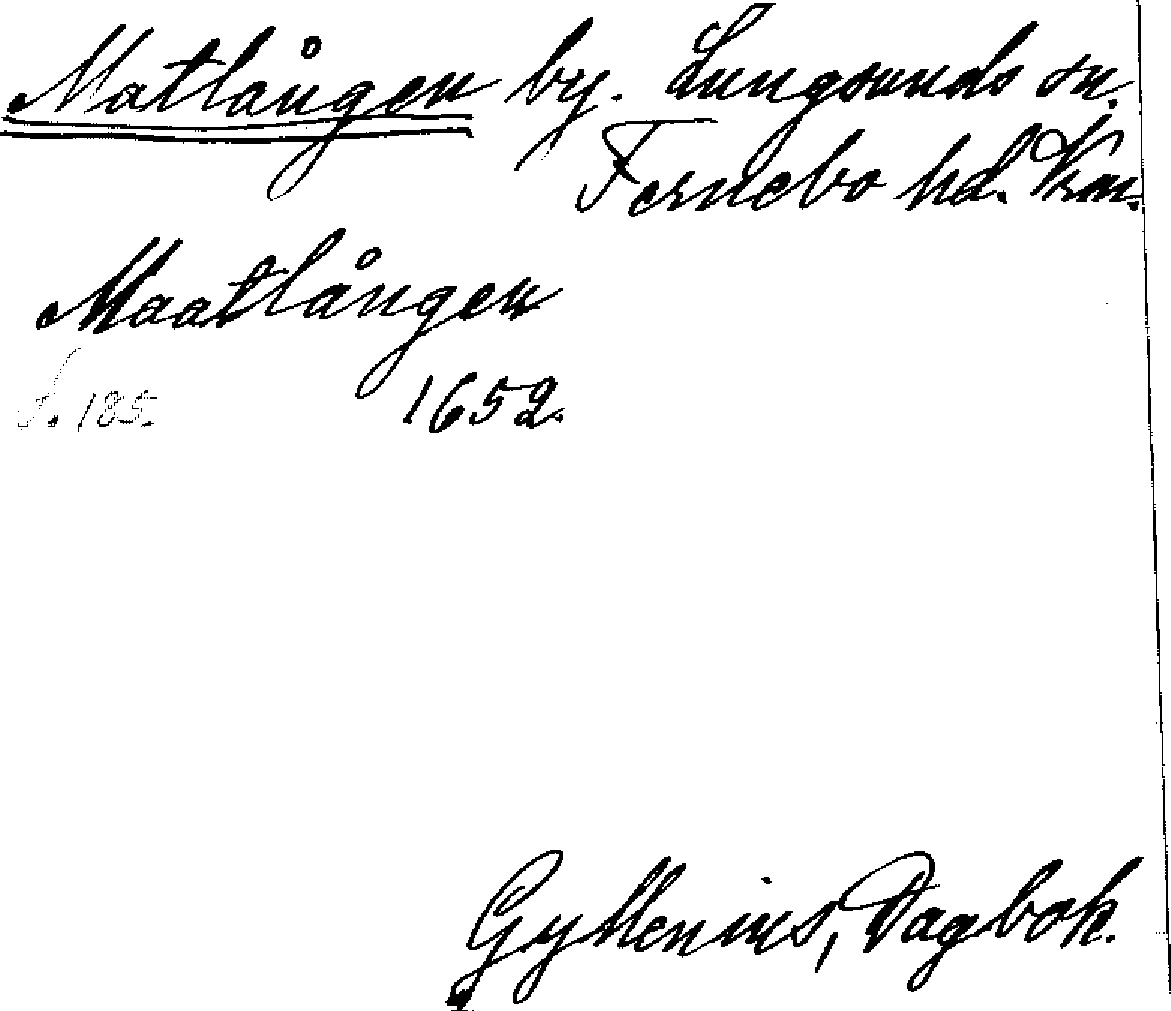 Matlången by. Lungsunds sn.
Fernebo hd. Vrm.
Maatlången
S. 185. 1652.
Gyllenius, Dagbok.